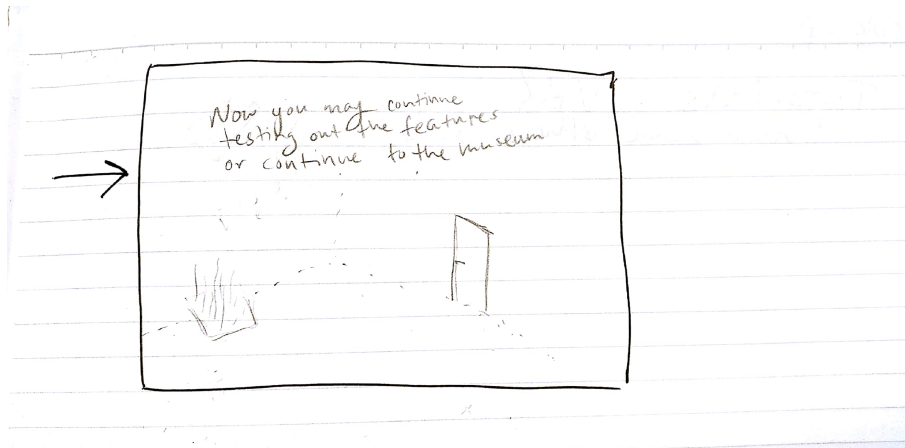 Now you may continue
testing out the features
or continue to the museum